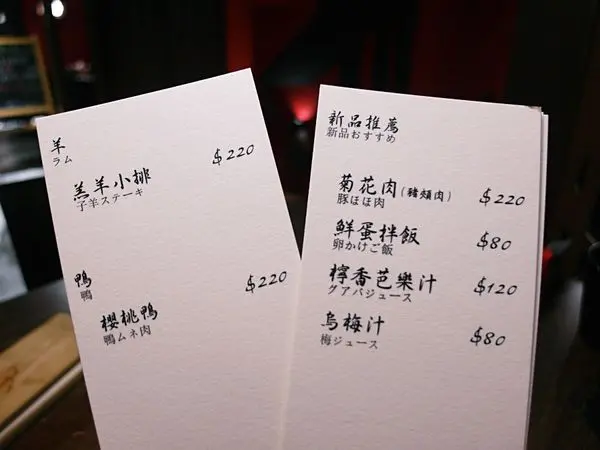 羊
ラム
羔羊小排 $220
子羊ステーキ
鴨
鴨
櫻桃鴨 $220
鴨ムネ肉
新品推薦
新品おすすめ
菊花肉(豬頰肉) $220
豚ほほ肉
鮮蛋拌飯 $80
卵かけご飯
檸香芭樂汁 $120
グアバジュース
烏梅汁 $80
梅ジュース